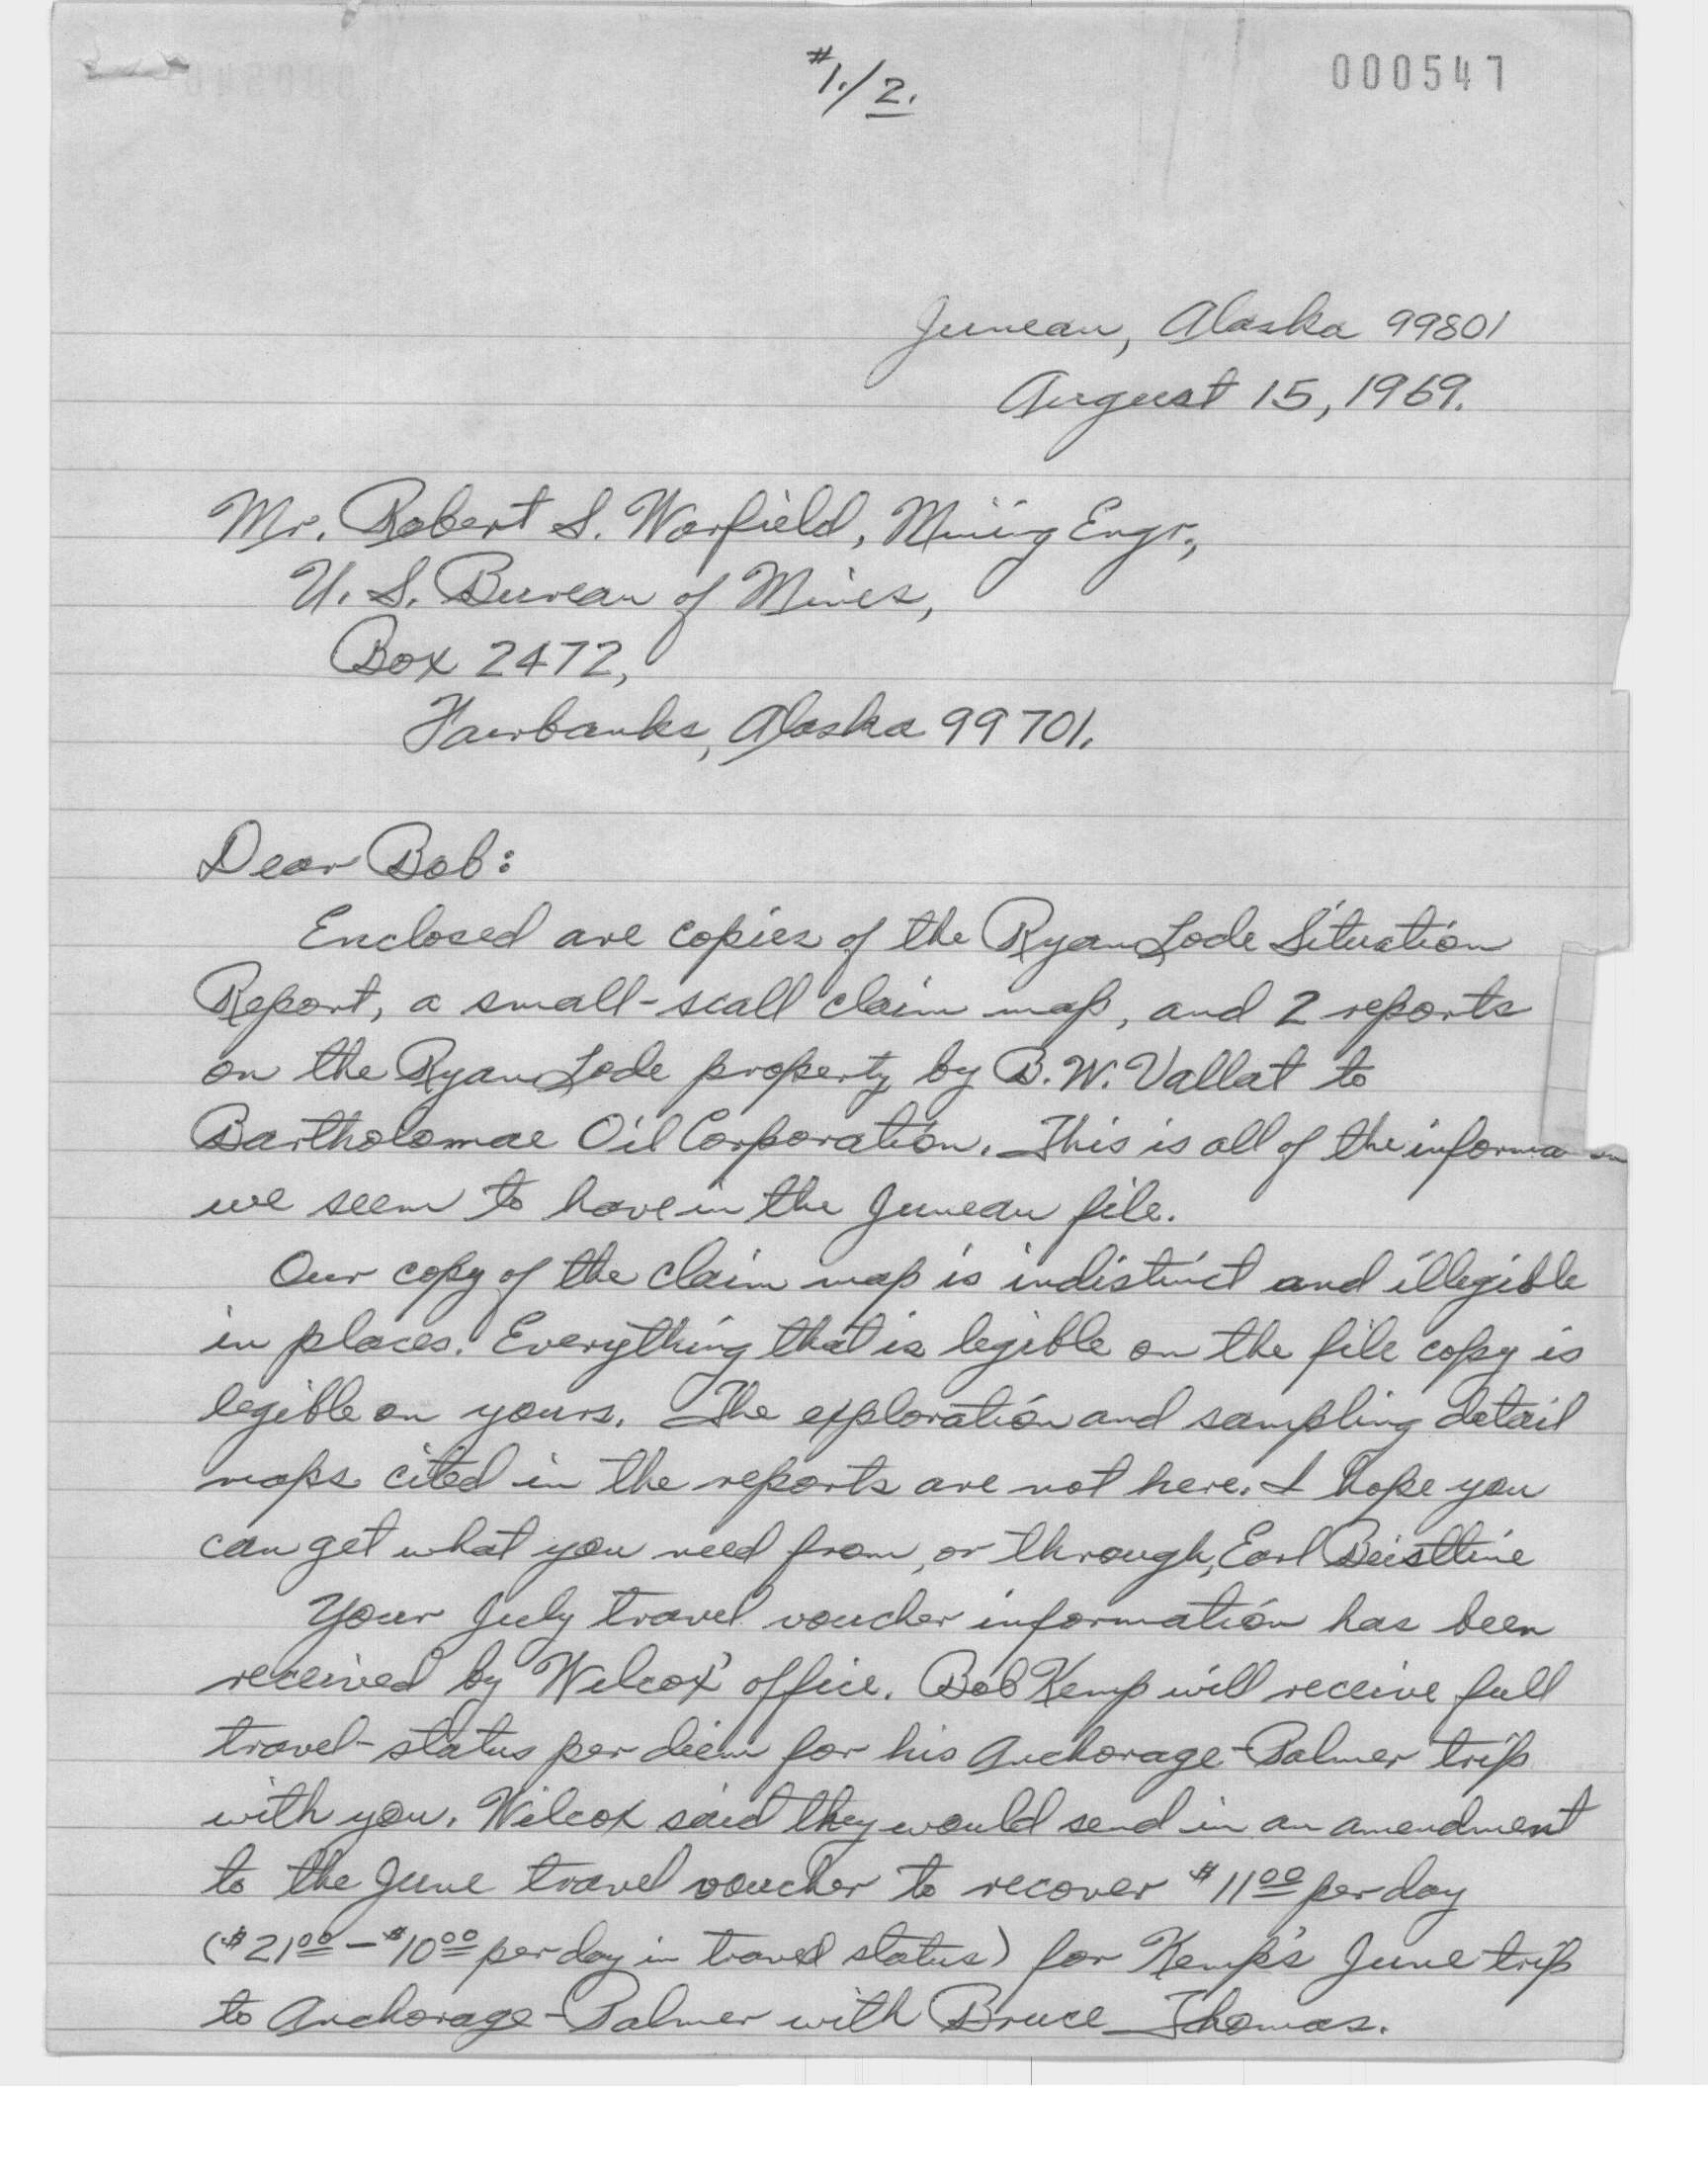 #1./2.
000547
Juneau, Alaska 99801
August 15, 1969.
Mr. Robert S. Warfield, Mining Engr.,
U. S. Bureau of Mines,
Box 2472,
Fairbanks, Alaska 99701.
Dear Bob:
Enclosed are copies of the Ryan Lode Situation
Report, a small-scall claim map, and 2 reports
on the Ryan Lode property by B. W. Vallat to
Bartholomae Oil Corporation. This is all of the informa
we seem to have in the Juneau file.
Our copy of the claim map is indistinct and illegible
in places. Everything that is legible on the file copy is
legible on yours. The exploration and sampling detail
maps cited in the reports are not here. I hope you
can get what you need from, or through, Earl Beistline
Your July travel voucher information has been
received by Wilcox' office. Bob Kemp will receive full
travel-status per diem for his Anchorage-Palmer trip
with you. Wilcox said they would send in an amendment
to the June travel voucher to recover $11.00 per day
($21.00 - $10.00 per day in travel status) for Kemp's June trip
to Anchorage-Palmer with Bruce Thomas.